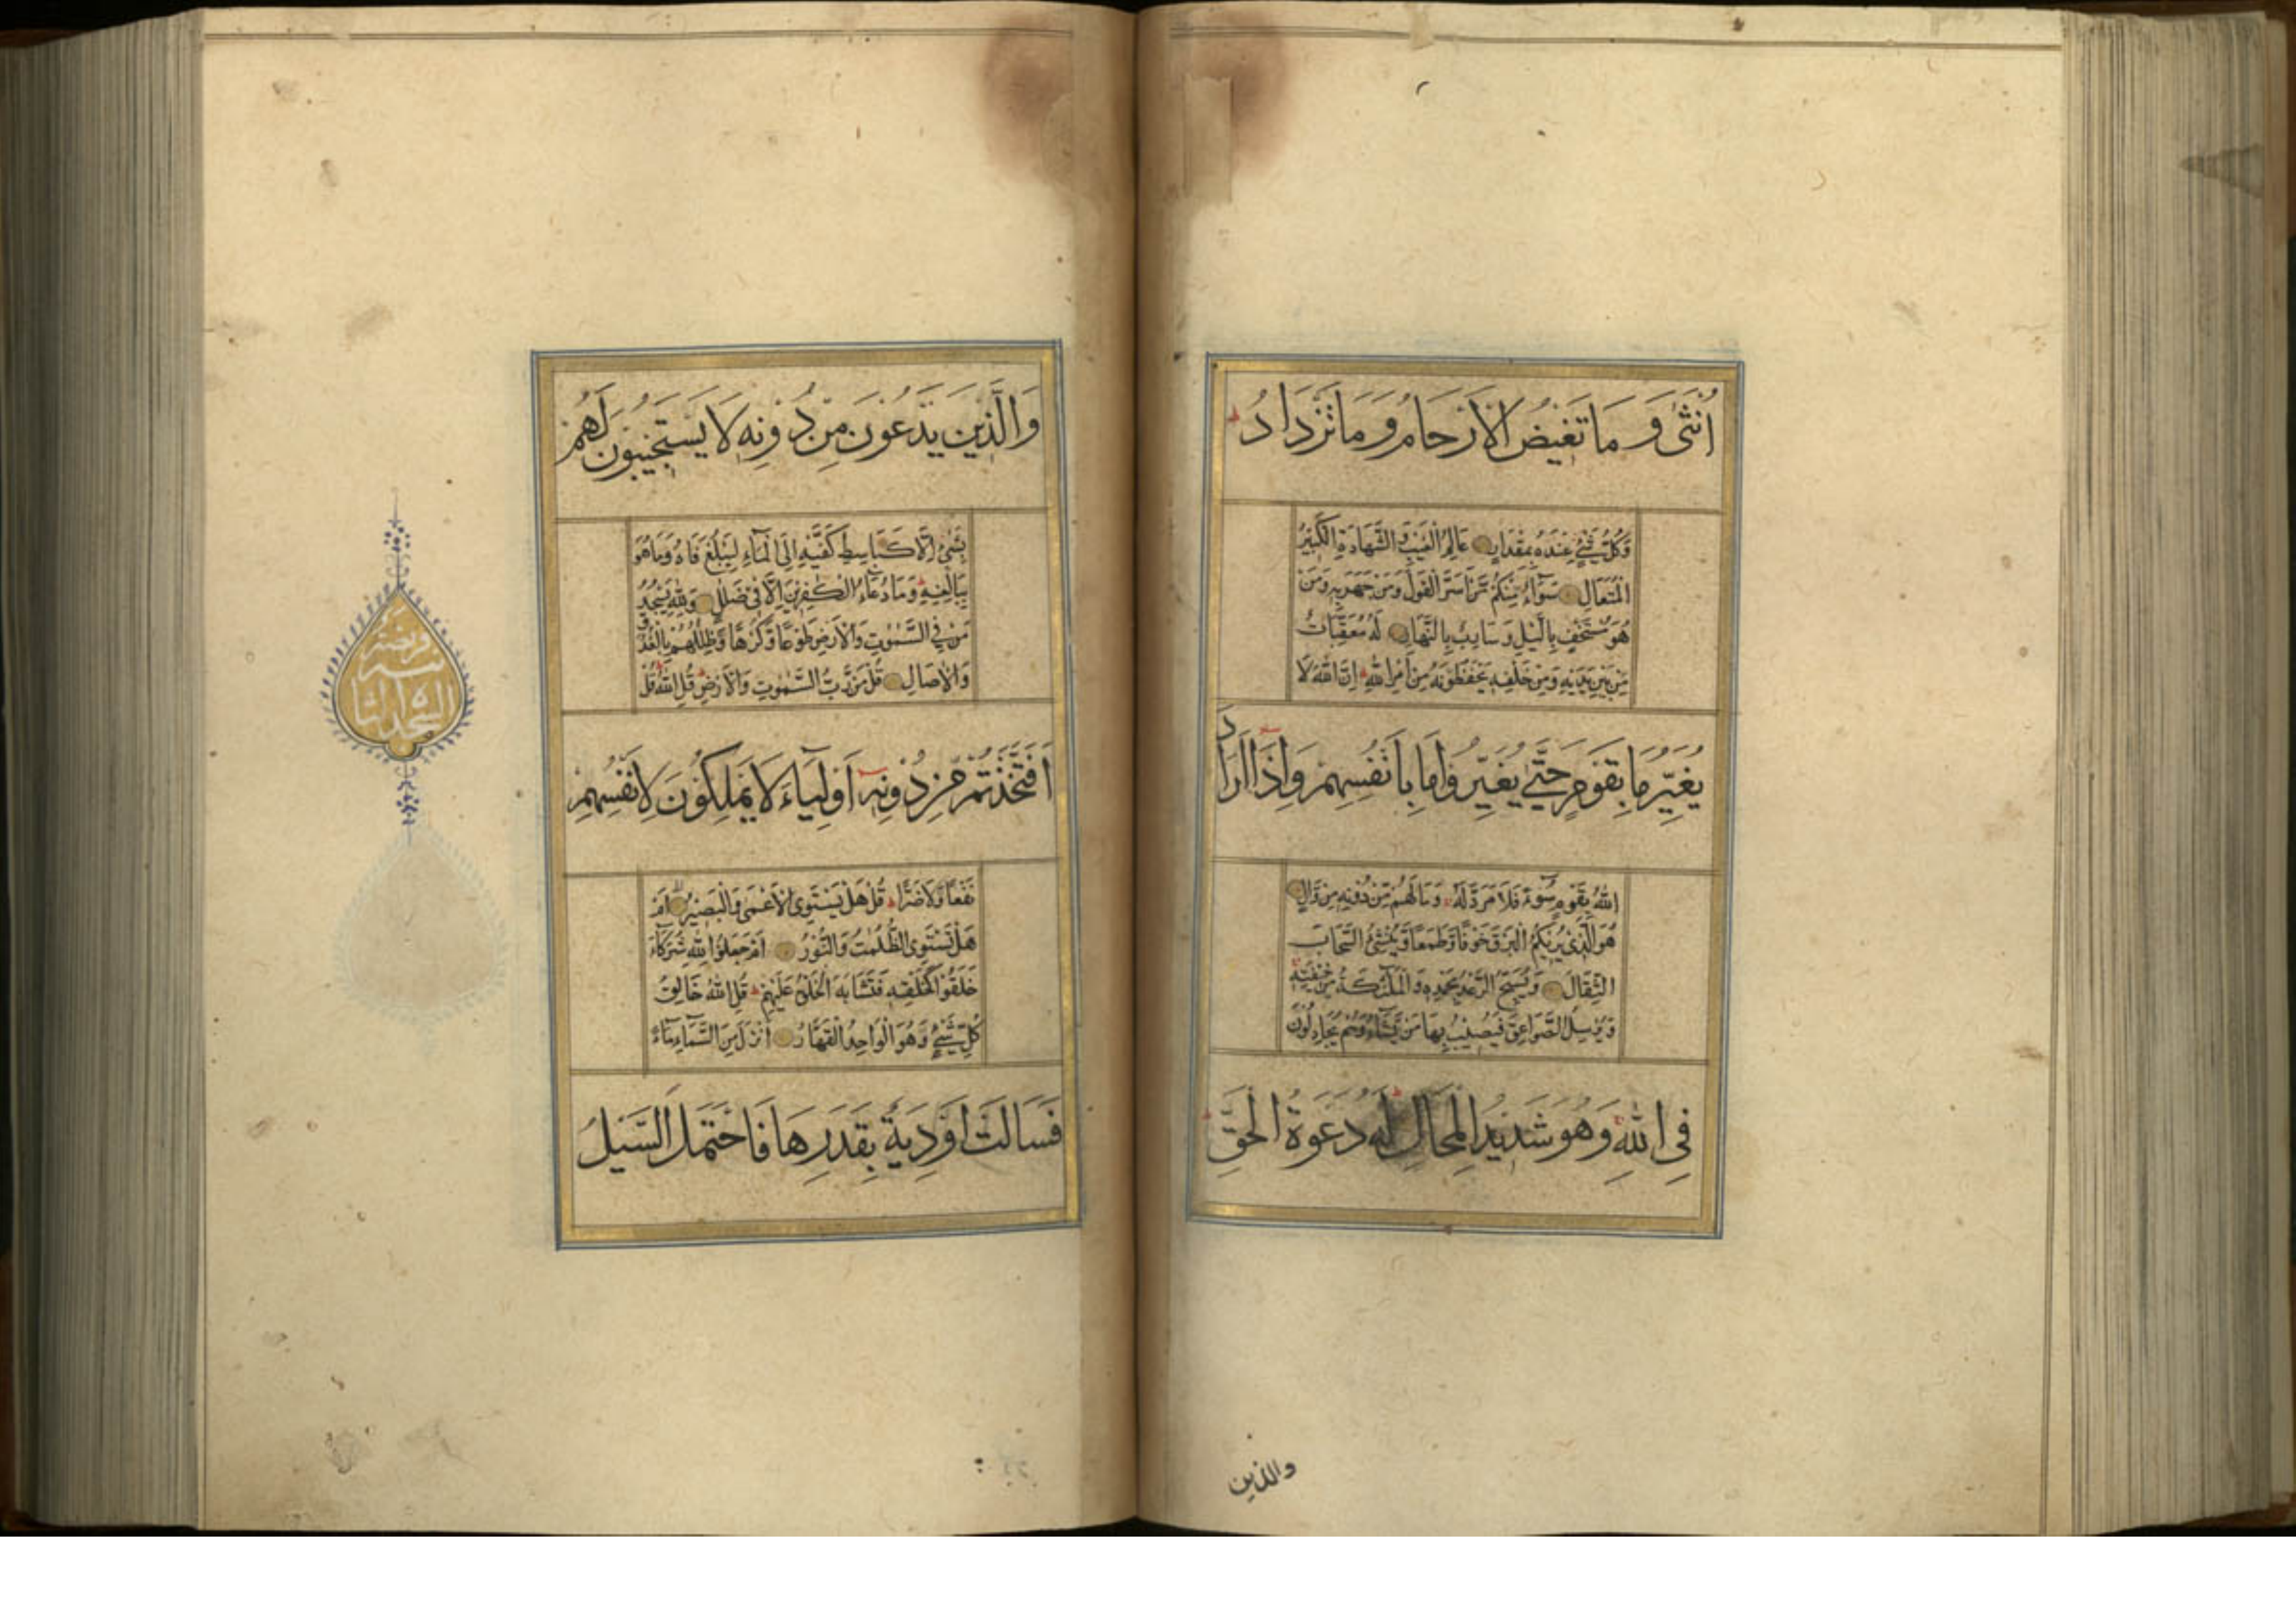 اُنْثٰى وَمَا تَغِيْضُ الْاَرْحَامُ وَمَا تَزْدَادُ
وَكُلُّ شَيْءٍ عِنْدَهُ بِمِقْدَارٍ عَالِمُ الْغَيْبِ وَالشَّهَادَةِ الْكَبِيْرُ
الْمُتَعَالِ سَوَآءٌ مِنْكُمْ مَّنْ اَسَرَّ الْقَوْلَ وَمَنْ جَهَرَ بِهٖ وَمَنْ
هُوَ مُسْتَخْفٍ بِالَّيْلِ وَسَارِبٌ بِالنَّهَارِ لَهُ مُعَقِّبَاتٌ
مِّنْ بَيْنِ يَدَيْهِ وَمِنْ خَلْفِهٖ يَحْفَظُوْنَهُ مِنْ اَمْرِ اللّٰهِ اِنَّ اللّٰهَ لَا
يُغَيِّرُ مَا بِقَوْمٍ حَتّٰى يُغَيِّرُوْا مَا بِاَنْفُسِهِمْ وَاِذَا اَرَادَ
اللّٰهُ بِقَوْمٍ سُوْءً فَلَا مَرَدَّ لَهُ وَمَا لَهُمْ مِّنْ دُوْنِهٖ مِنْ وَّالٍ
هُوَ الَّذِىْ يُرِيْكُمُ الْبَرْقَ خَوْفًا وَّطَمَعًا وَّيُنْشِئُ السَّحَابَ
الثِّقَالَ وَيُسَبِّحُ الرَّعْدُ بِحَمْدِهٖ وَالْمَلٰئِكَةُ مِنْ خِيْفَتِهٖ
وَيُرْسِلُ الصَّوَاعِقَ فَيُصِيْبُ بِهَا مَنْ يَّشَآءُ وَهُمْ يُجَادِلُوْنَ
فِى اللّٰهِ وَهُوَ شَدِيْدُ الْمِحَالِ لَهُ دَعْوَةُ الْحَقِّ
والذين
وَالَّذِيْنَ يَدْعُوْنَ مِنْ دُوْنِهٖ لَا يَسْتَجِيْبُوْنَ لَهُمْ
بِشَيْءٍ اِلَّا كَبَاسِطِ كَفَّيْهِ اِلَى الْمَآءِ لِيَبْلُغَ فَاهُ وَمَا هُوَ
بِبَالِغِهٖ وَمَا دُعَآءُ الْكٰفِرِيْنَ اِلَّا فِىْ ضَلٰلٍ وَلِلّٰهِ يَسْجُدُ
مَنْ فِى السَّمٰوٰتِ وَالْاَرْضِ طَوْعًا وَّكَرْهًا وَّظِلٰلُهُمْ بِالْغُدُوِّ
وَالْاٰصَالِ قُلْ مَنْ رَّبُّ السَّمٰوٰتِ وَالْاَرْضِ قُلِ اللّٰهُ قُلْ
اَفَاتَّخَذْتُمْ مِنْ دُوْنِهٖ اَوْلِيَآءَ لَا يَمْلِكُوْنَ لِاَنْفُسِهِمْ
نَفْعًا وَّلَا ضَرًّا قُلْ هَلْ يَسْتَوِى الْاَعْمٰى وَالْبَصِيْرُ اَمْ
هَلْ تَسْتَوِى الظُّلُمٰتُ وَالنُّوْرُ اَمْ جَعَلُوْا لِلّٰهِ شُرَكَآءَ
خَلَقُوْا كَخَلْقِهٖ فَتَشَابَهَ الْخَلْقُ عَلَيْهِمْ قُلِ اللّٰهُ خَالِقُ
كُلِّ شَيْءٍ وَّهُوَ الْوَاحِدُ الْقَهَّارُ اَنْزَلَ مِنَ السَّمَآءِ مَآءً
فَسَالَتْ اَوْدِيَةٌ بِقَدَرِهَا فَاحْتَمَلَ السَّيْلُ